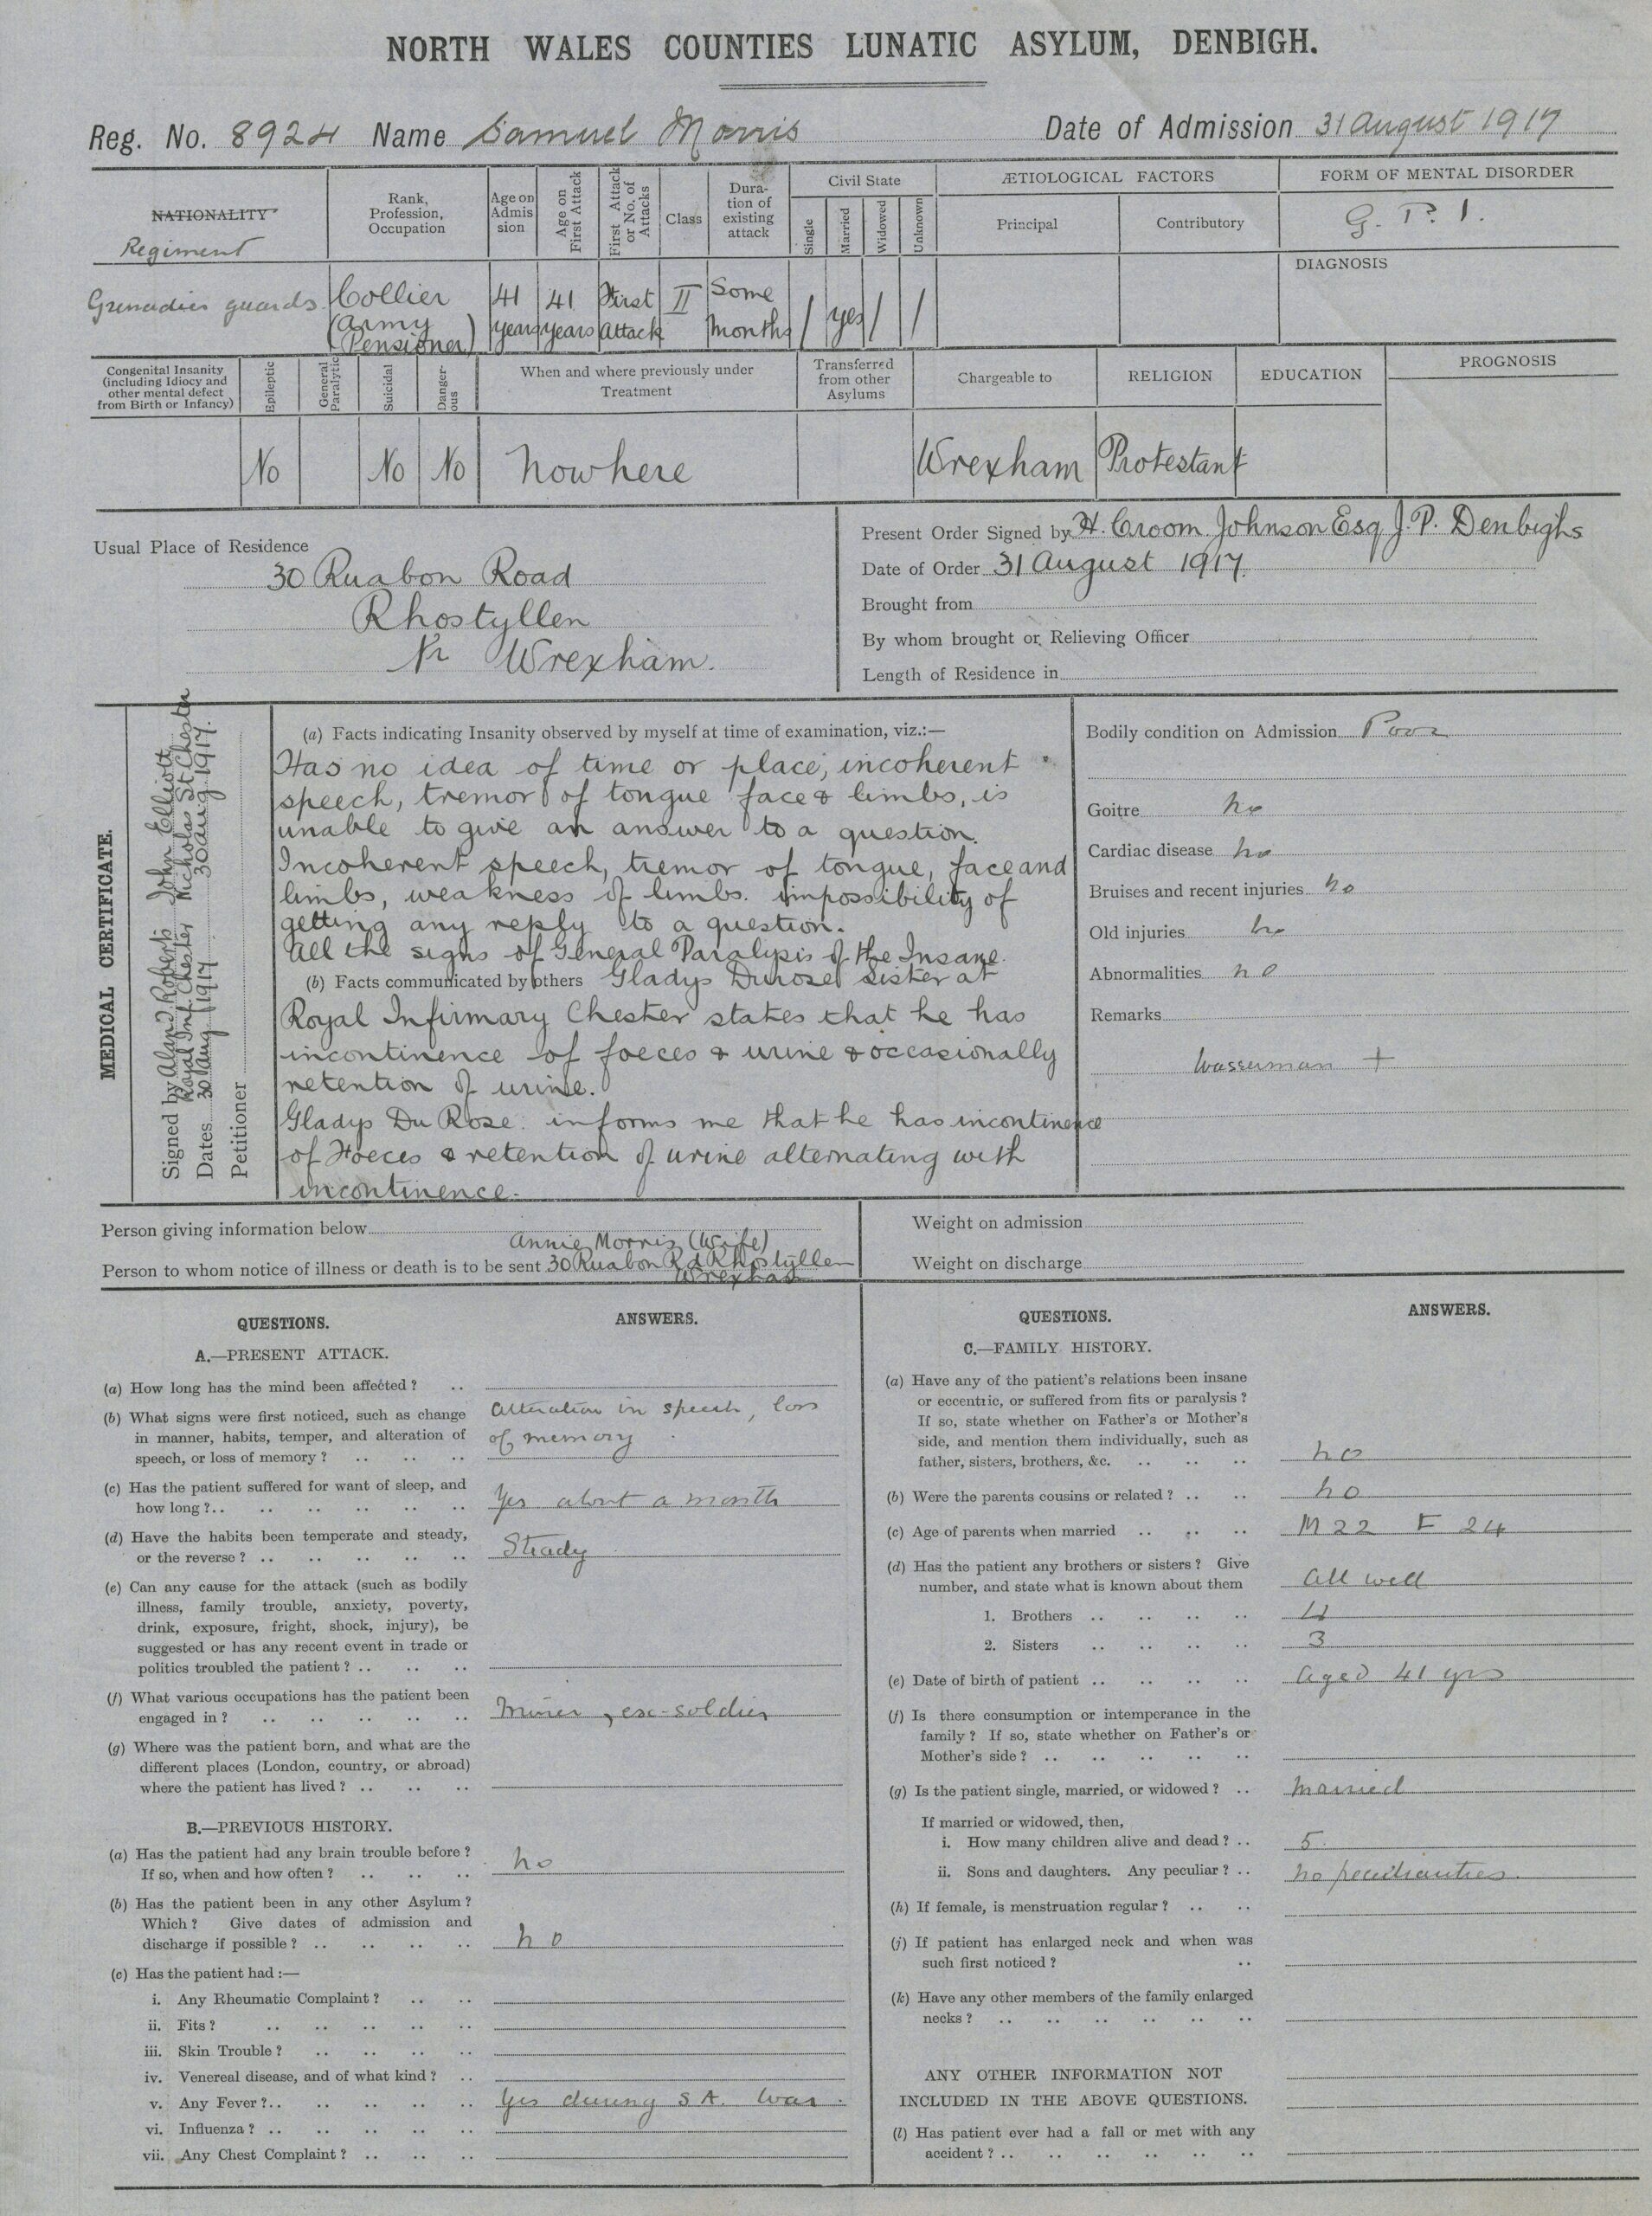 NORTH WALES COUNTIES LUNATIC ASYLUM, DENBIGH.
Reg. No. 8924 Name Samuel Morris Date of Admission 31 August 1917
NATIONALITY
Regiment
Rank, Profession, Occupation
Age on Admission
Age on First Attack
First Attack or No. of Attacks
Class
Duration of existing attack
Civil State
Single
Married
Widowed
Unknown
ÆTIOLOGICAL FACTORS
Principal
Contributory
FORM OF MENTAL DISORDER
G. P. I.
DIAGNOSIS
Grenadier guards.
Collier
(Army
Pensioner)
41 years
41 years
First Attack
II
Some Months
/ yes / /
Congenital Insanity
(including Idiocy and
other mental defect
from Birth or Infancy)
Epileptic
General Paralytic
Suicidal
Dangerous
When and where previously under
Treatment
Transferred
from other
Asylums
Chargeable to
RELIGION
EDUCATION
PROGNOSIS
No
No
No
Nowhere
Wrexham
Protestant
Usual Place of Residence
30 Ruabon Road
Rhostyllen
Nr Wrexham.
Present Order Signed by H. Croom. Johnson Esq J.P. Denbighs
Date of Order 31 August 1917.
Brought from
By whom brought or Relieving Officer
Length of Residence in
MEDICAL CERTIFICATE.
Signed by Alan Roberts John Elliott
Royal Inf. Chester Nicholas St Chester
Dates 30 Aug 1917 30 Aug. 1917.
Petitioner
(a) Facts indicating Insanity observed by myself at time of examination, viz.:—
Has no idea of time or place, incoherent
speech, tremor of tongue face & limbs, is
unable to give an answer to a question.
Incoherent speech, tremor of tongue, face and
limbs, weakness of limbs. impossibility of
getting any reply to a question.
All the signs of General Paralysis of the Insane.
(b) Facts communicated by others Gladys Durose Sister at
Royal Infirmary Chester states that he has
incontinence of foeces & urine & occasionally
retention of urine.
Gladys Du Rose. informs me that he has incontinence
of Foeces & retention of urine alternating with
incontinence.
Bodily condition on Admission Poor
Goitre no
Cardiac disease no
Bruises and recent injuries no
Old injuries no
Abnormalities no
Remarks
Wasserman +
Person giving information below
Annie Morris (Wife)
Person to whom notice of illness or death is to be sent 30 Ruabon Rd Rhostyllen
Wrexham
Weight on admission
Weight on discharge
QUESTIONS. ANSWERS.
A.—PRESENT ATTACK.
(a) How long has the mind been affected? ..
(b) What signs were first noticed, such as change
in manner, habits, temper, and alteration of
speech, or loss of memory? .. .. ..
alteration in speech, loss
of memory
(c) Has the patient suffered for want of sleep, and
how long?.. .. .. .. .. .. Yes about a month
(d) Have the habits been temperate and steady,
or the reverse? .. .. .. .. .. Steady
(e) Can any cause for the attack (such as bodily
illness, family trouble, anxiety, poverty,
drink, exposure, fright, shock, injury), be
suggested or has any recent event in trade or
politics troubled the patient? .. .. ..
(f) What various occupations has the patient been
engaged in? .. .. .. .. .. Miner, ex-soldier
(g) Where was the patient born, and what are the
different places (London, country, or abroad)
where the patient has lived? .. .. ..
B.—PREVIOUS HISTORY.
(a) Has the patient had any brain trouble before?
If so, when and how often? .. .. .. no
(b) Has the patient been in any other Asylum?
Which? Give dates of admission and
discharge if possible? .. .. .. .. no
(c) Has the patient had :—
i. Any Rheumatic Complaint? .. ..
ii. Fits? .. .. .. .. ..
iii. Skin Trouble? .. .. .. ..
iv. Venereal disease, and of what kind? ..
v. Any Fever?.. .. .. .. .. Yes during S A. War.
vi. Influenza? .. .. .. .. ..
vii. Any Chest Complaint? .. .. ..
QUESTIONS. ANSWERS.
C.—FAMILY HISTORY.
(a) Have any of the patient's relations been insane
or eccentric, or suffered from fits or paralysis?
If so, state whether on Father's or Mother's
side, and mention them individually, such as
father, sisters, brothers, &c. .. .. .. no
(b) Were the parents cousins or related? .. .. no
(c) Age of parents when married .. .. .. M 22 F 24
(d) Has the patient any brothers or sisters? Give
number, and state what is known about them all well
1. Brothers .. .. .. .. 4
2. Sisters .. .. .. .. 3
(e) Date of birth of patient .. .. .. .. aged 41 yrs
(f) Is there consumption or intemperance in the
family? If so, state whether on Father's or
Mother's side? .. .. .. .. ..
(g) Is the patient single, married, or widowed? .. Married
If married or widowed, then,
i. How many children alive and dead? .. 5.
ii. Sons and daughters. Any peculiar? .. no peculiarities.
(h) If female, is menstruation regular? .. ..
(j) If patient has enlarged neck and when was
such first noticed? ..
(k) Have any other members of the family enlarged
necks? .. .. .. .. .. ..
ANY OTHER INFORMATION NOT
INCLUDED IN THE ABOVE QUESTIONS.
(l) Has patient ever had a fall or met with any
accident? .. .. .. .. .. ..